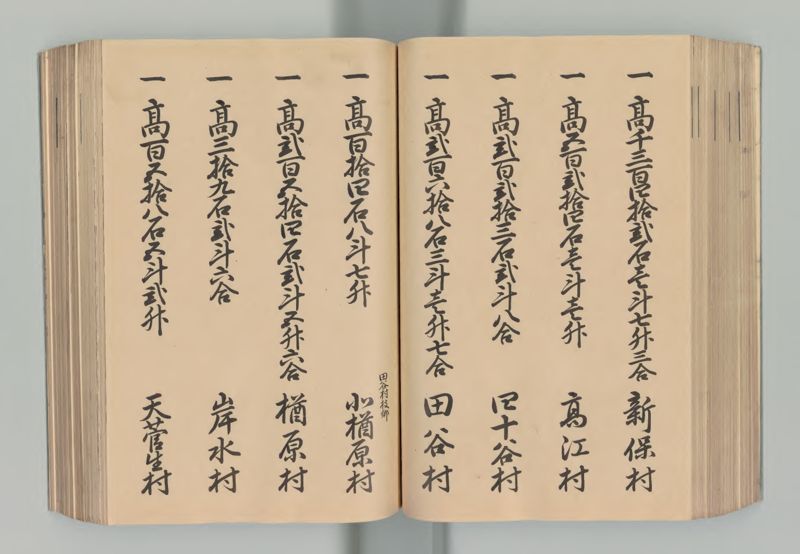 一 高千三百四拾弐石壱斗七升三合 新保村
一 高五百弐拾四石壱斗壱升 高江村
一 高弐百弐拾三石弐斗八合 四十谷村
一 高弐百六拾八石三斗壱升七合 田谷村
田谷村枝郷
一 高百拾四石八斗七升 小楢原村
一 高弐百五拾四石弐斗五升六合 楢原村
一 高三拾九石弐斗六合 岸水村
一 高百五拾八石五斗弐升 天菅生村